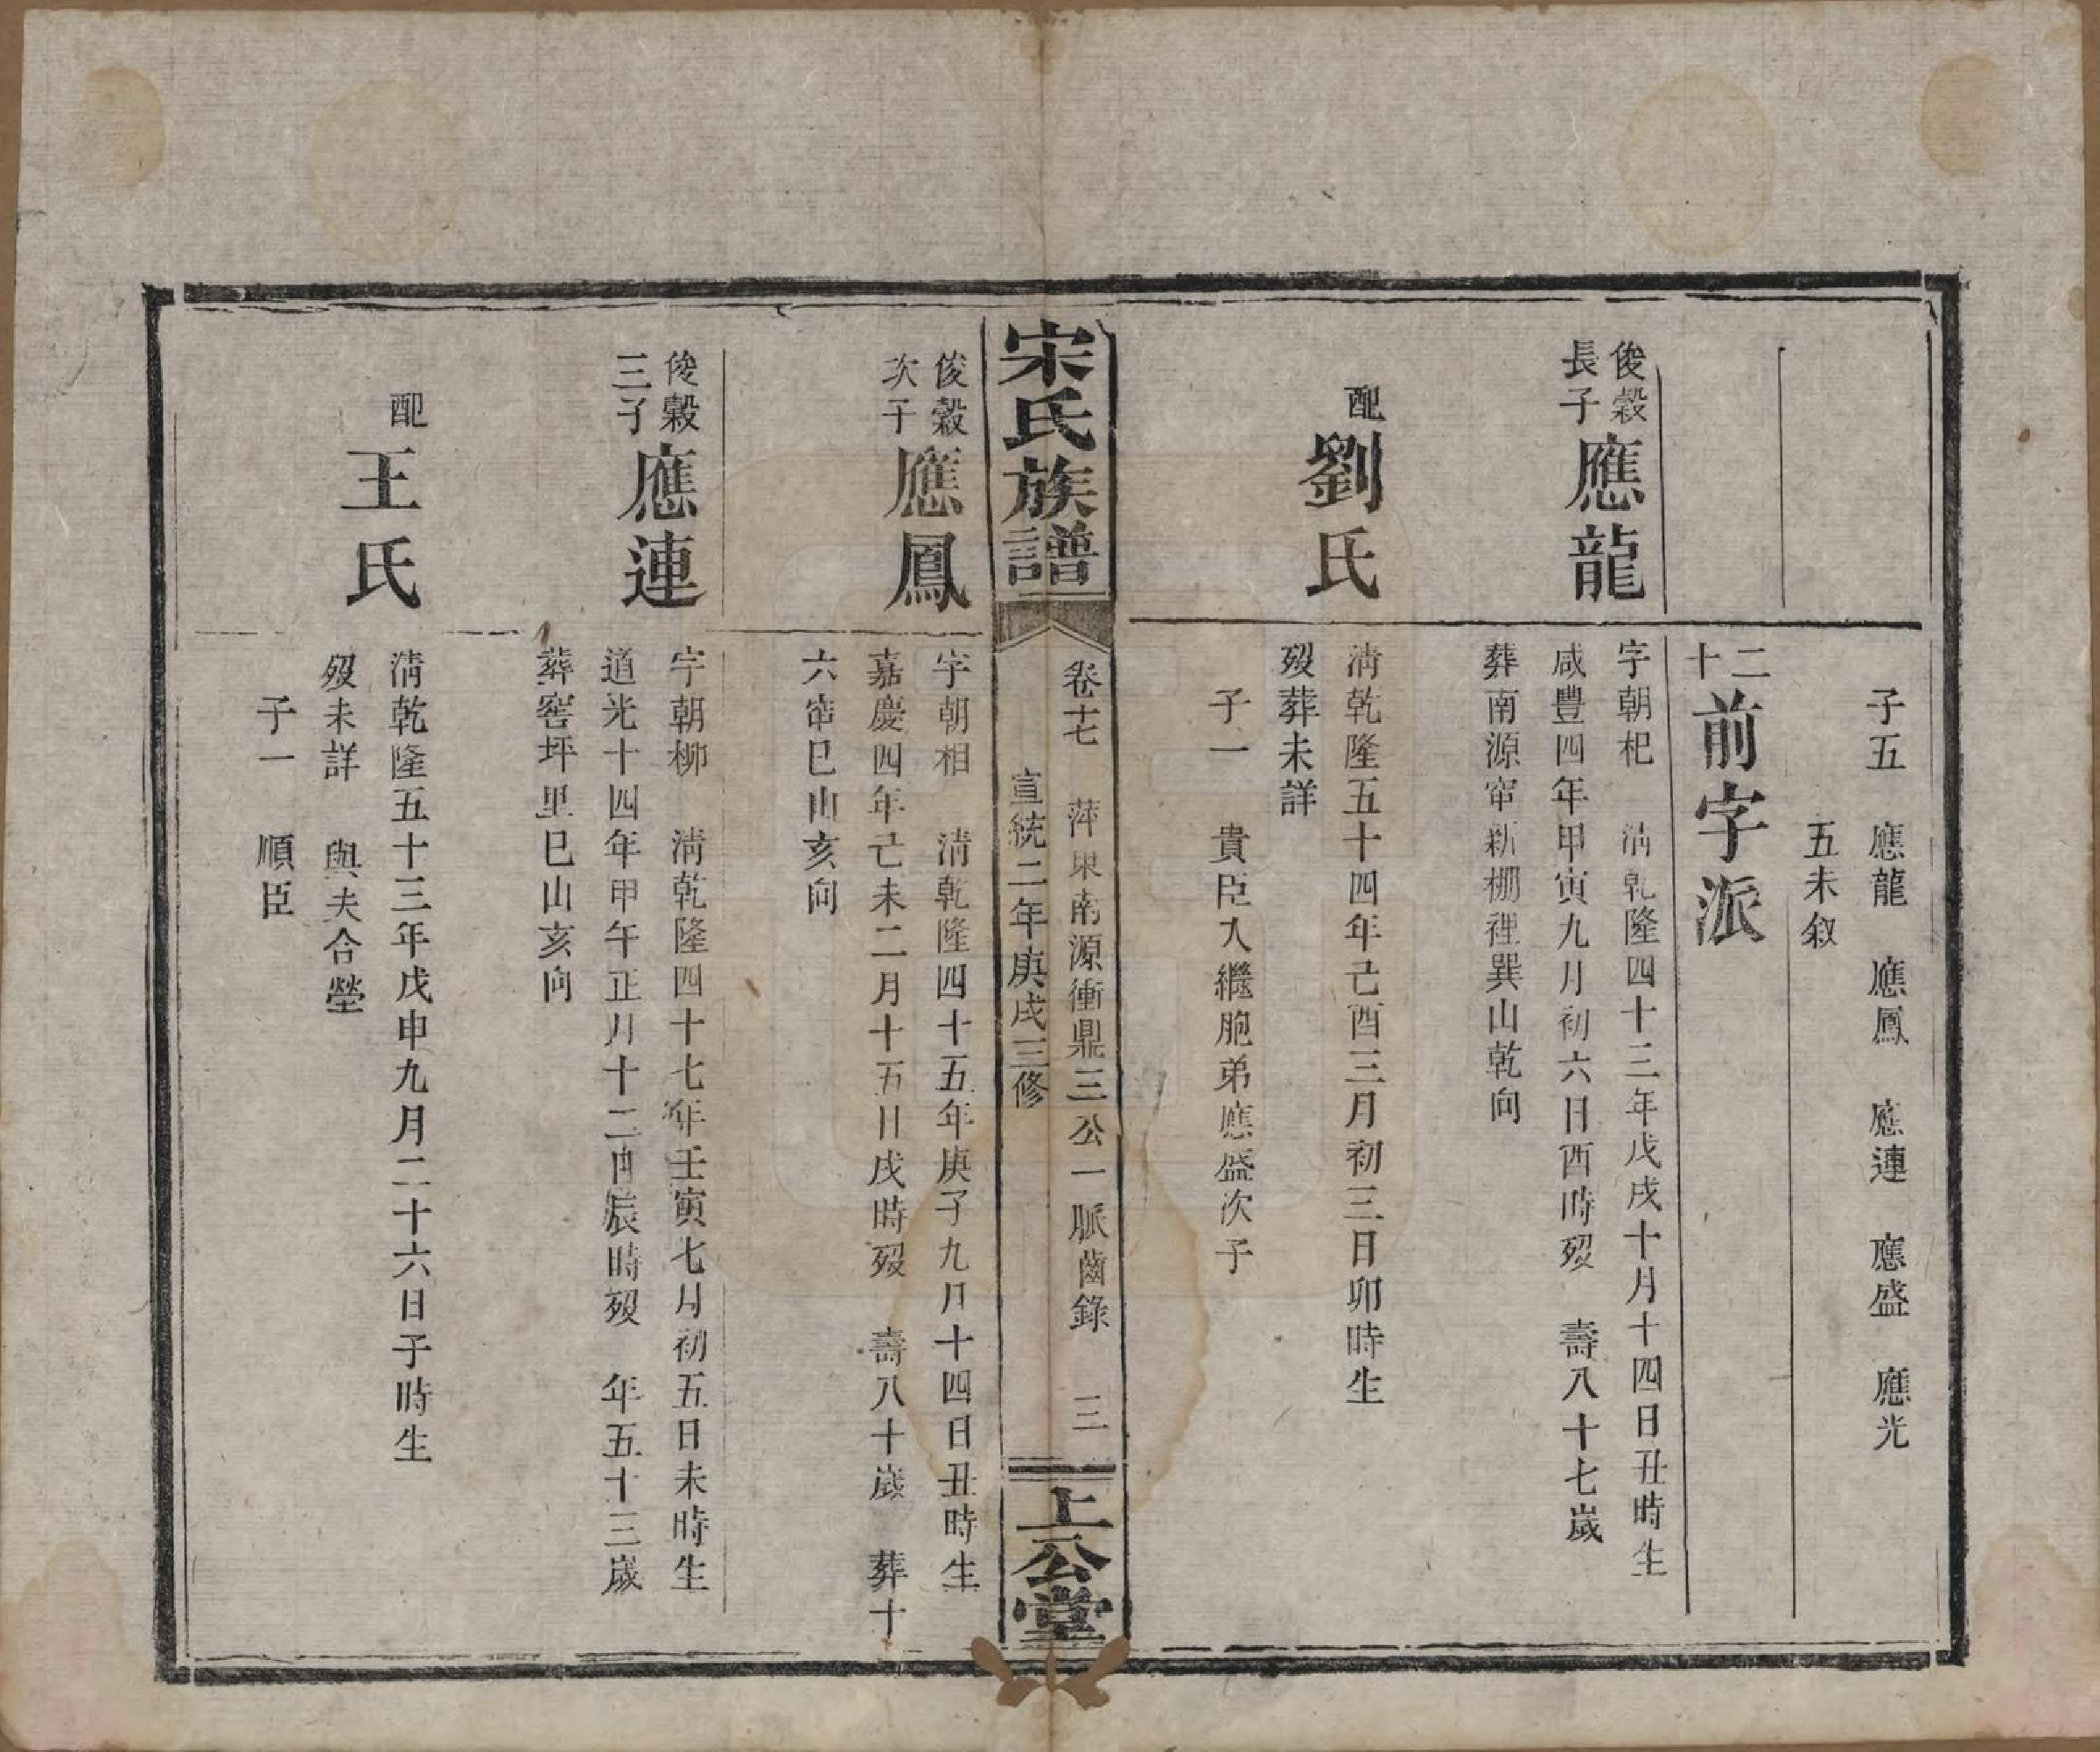 子五　應龍　應鳳　應連　應盛　應光
五未叙
十二前字派
俊穀長子應龍
字朝杞　淸乾隆四十三年戊戌十月十四日丑時生
咸豐四年甲寅九月初六日酉時歿　壽八十七歲
葬南源窂新棚裡巽山乾向
配劉氏
淸乾隆五十四年己酉三月初三日卯時生
歿葬未詳
子一　貴臣入繼胞弟應盛次子
宋氏族譜
卷十七　萍東南源衝鼎三公一脈齒錄　三
宣統二年庚戌三修
上公堂
俊穀次子應鳳
字朝相　淸乾隆四十五年庚子九月十四日丑時生
嘉慶四年己未二月十五日戌時歿　壽八十歲　葬十
六窂巳山亥向
俊穀三子應連
字朝柳　淸乾隆四十七年壬寅七月初五日未時生
道光十四年甲午正月十二日辰時歿　年五十三歲
葬窖坪里巳山亥向
配王氏
淸乾隆五十三年戊申九月二十六日子時生
歿未詳　與夫合塋
子一　順臣